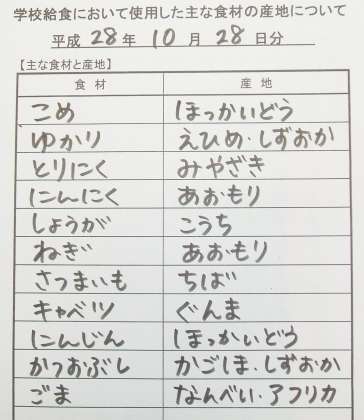 学校給食において使用した主な食材の産地について
平成 28 年 10 月 28 日分
【主な食材と産地】
食材 産地
こめ ほっかいどう
ゆかり えひめ・しずおか
とりにく みやざき
にんにく あおもり
しょうが こうち
ねぎ あおもり
さつまいも ちば
キャベツ ぐんま
にんじん ほっかいどう
かつおぶし かごしま・しずおか
ごま なんべい・アフリカ